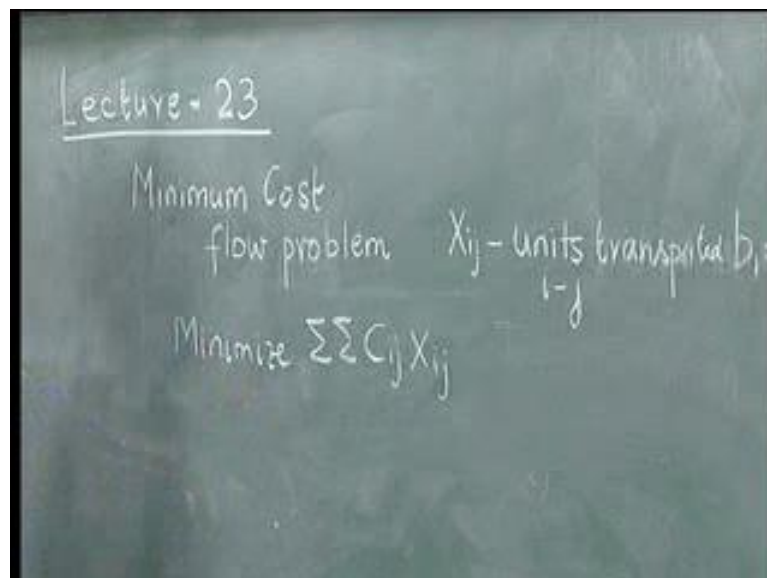 Lecture - 23
Minimum Cost
flow problem Xij - units transported b,
i-j
Minimize ΣΣ Cij Xij